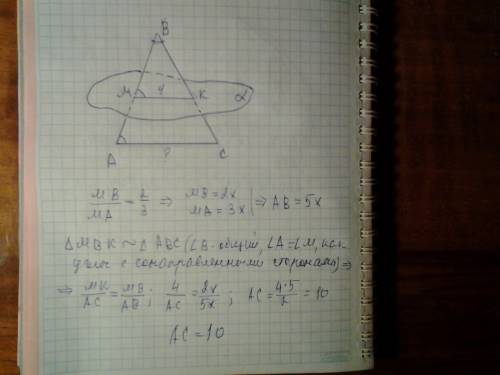 B
M 4 K α
A ? C
MB/MA = 2/3 ⇒ MB = 2x MA = 3x | ⇒ AB = 5x
ΔMBK ~ Δ ABC (∠B - общий, ∠A = ∠M, как
углы с сонаправленными сторонами) ⇒
⇒ MK/AC = MB/AB ; 4/AC = 2x/5x ; AC = 4·5/2 = 10
AC = 10